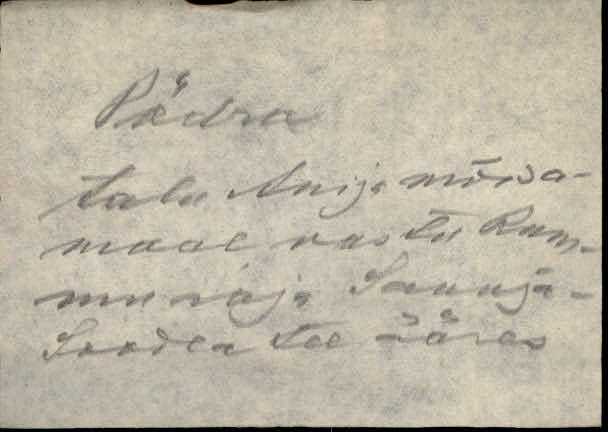 Põdra
talu Anija mõisa-
maal vastu Rum-
mu raja Saunja-
Soodla tee ääres